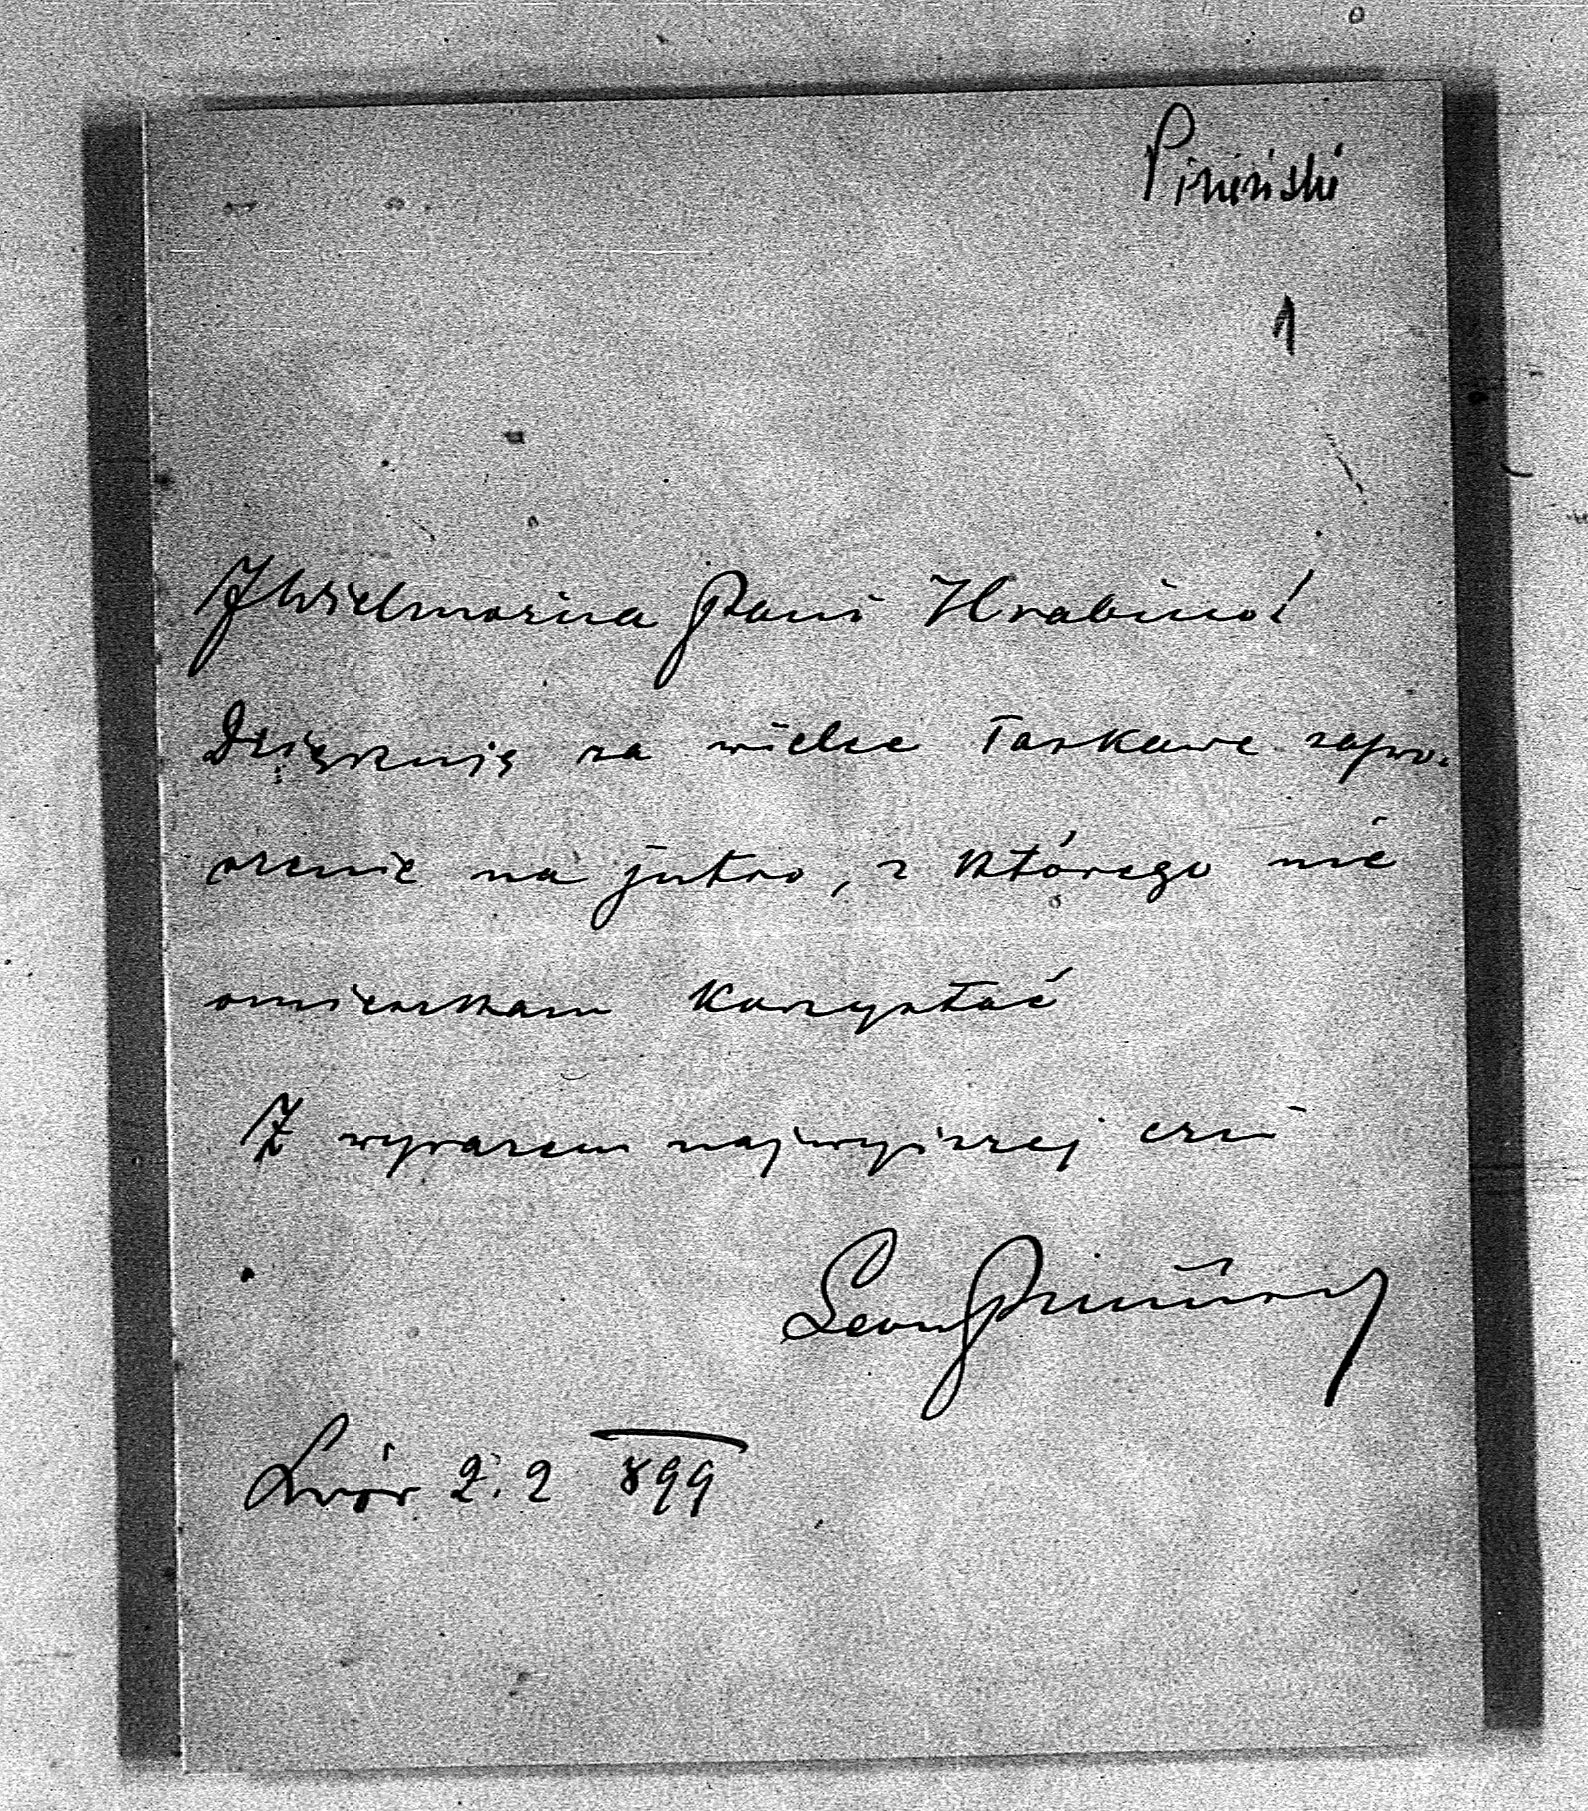 Piniński
1
JWielmożna Pani Hrabino!
Dziękuję za wielce łaskawe zapro-
szenie na jutro, z którego nie
omieszkam korzystać
Z wyrazem najwyższej czci
Leon Piniński
Lwów 2. 2 899